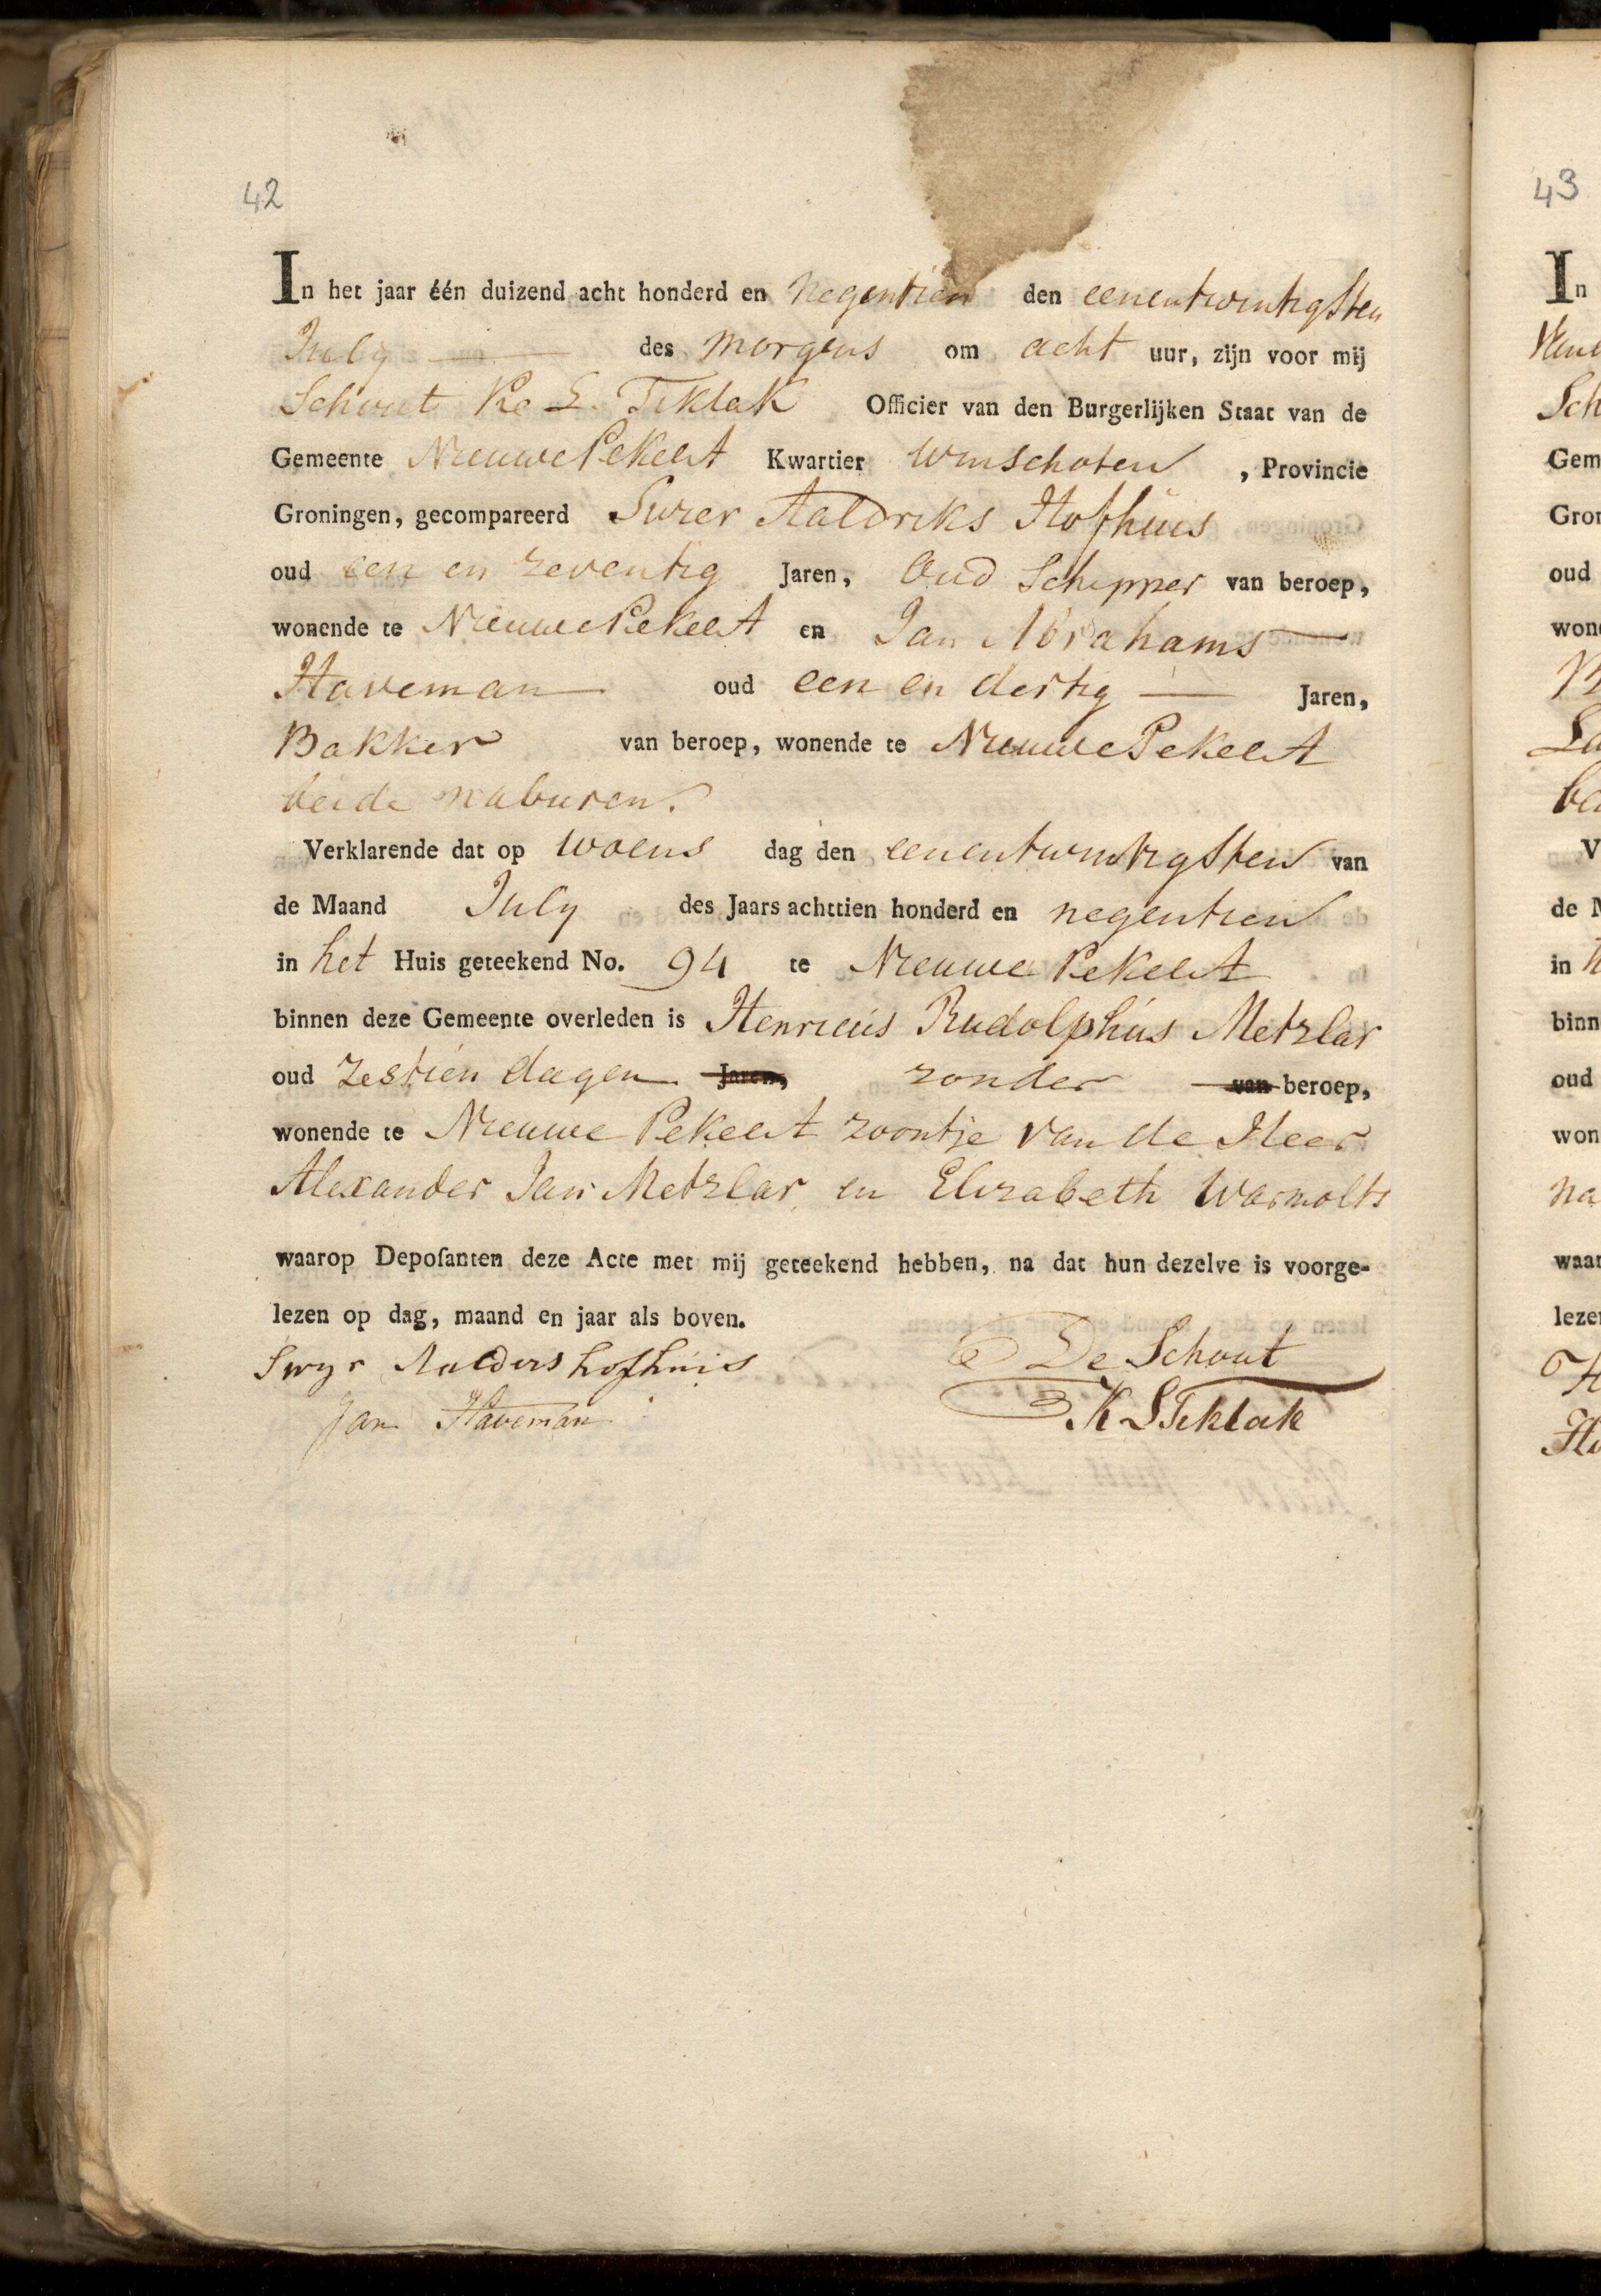 42
In het jaar één duizend acht honderd en negentien den eenentwintigsten
July des morgens om acht uur, zijn voor mij
Schout Ks S. Tiktak Officier van den Burgerlijken Staat van de
Gemeente NieuwePekelA Kwartier Winschoten , Provincie
Groningen, gecompareerd Swier Aaldriks Hofhuis
oud een en zeventig Jaren, Oud Schipper van beroep,
wonende te NieuwePekelA en Jan Abrahams
Haveman oud een en dertig Jaren,
Bakker van beroep, wonende te NieuwePekelA
beide naburen.
Verklarende dat op woens dag den eenentwintigsten van
de Maand July des Jaars achttien honderd en negentien
in het Huis geteekend No. 94 te Nieuwe PekelA
binnen deze Gemeente overleden is Henricus Rudolphus Metzlar
oud zestien dagen Jaren, zonder van beroep,
wonende te Nieuwe PekelA zoontje van de Heer
Alexander Jan Metzlar en Elizabeth Warmolts
waarop Deposanten deze Acte met mij geteekend hebben, na dat hun dezelve is voorge-
lezen op dag, maand en jaar als boven.
Swyr Aalders hofhuis De Schout
Jan Haveman K S Tiktak
43
In
Sch
Gem
Gron
oud
won
V
de M
in
binn
oud
won
na
waar
lezen